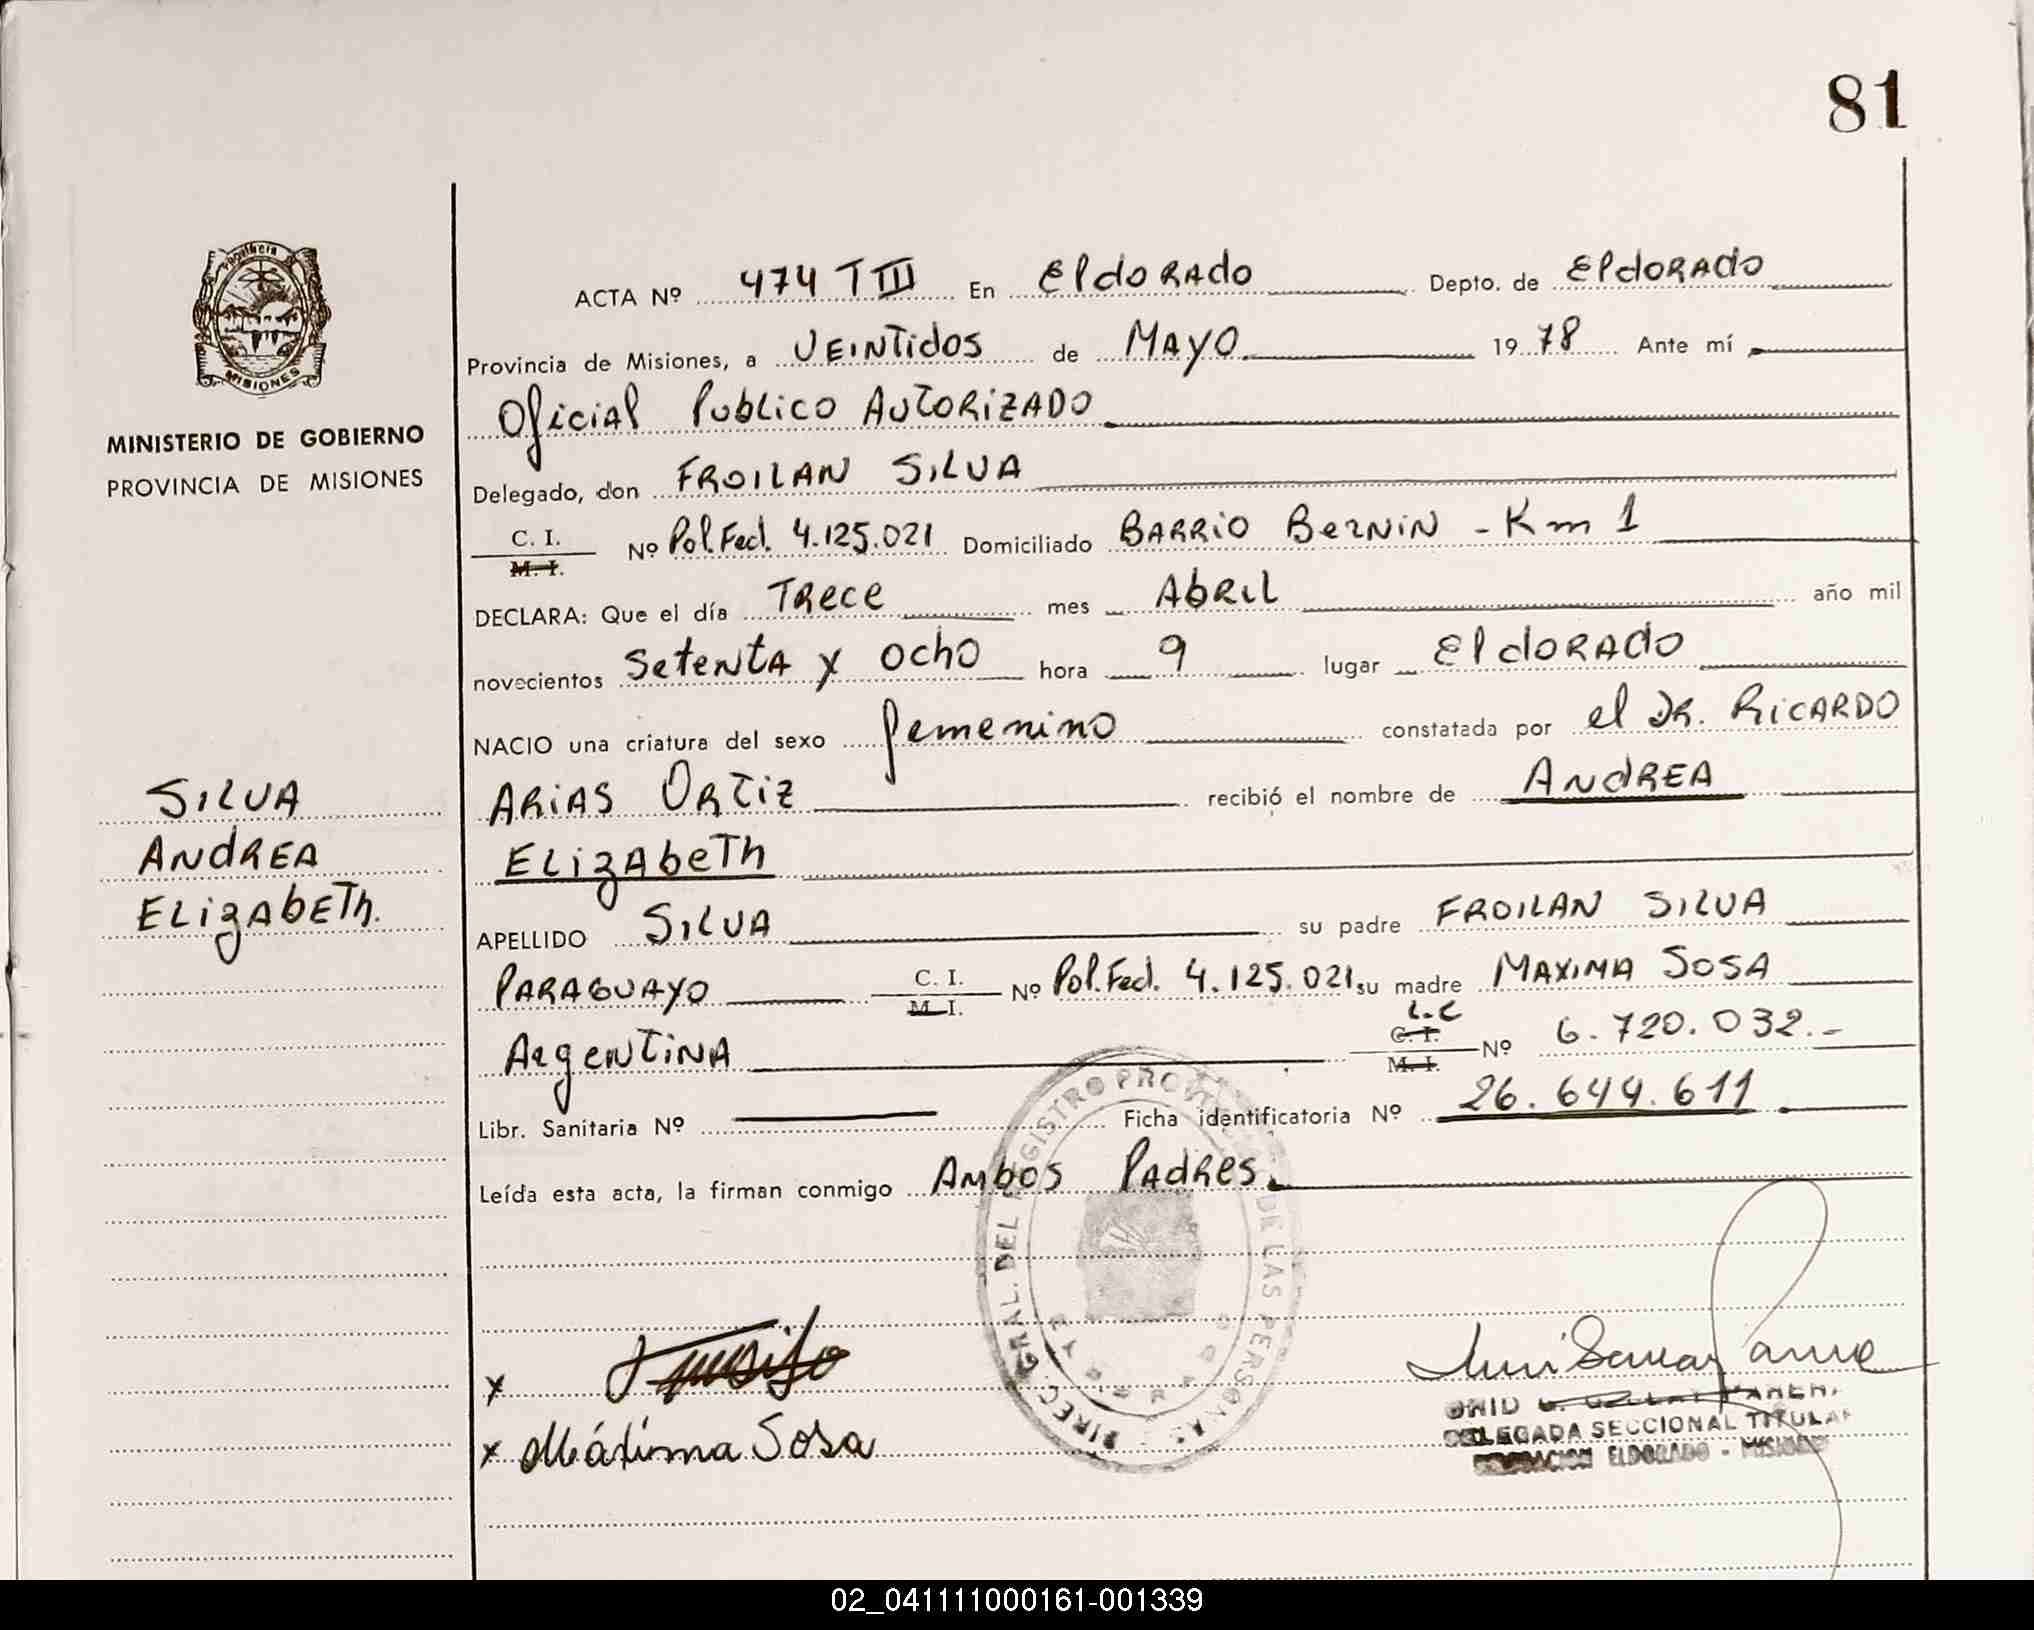 81
Provincia
MISIONES
MINISTERIO DE GOBIERNO
PROVINCIA DE MISIONES
SILVA
ANDREA
ELIZABETH.
ACTA Nº 474 T III En Eldorado Depto. de Eldorado
Provincia de Misiones, a VEINTIDOS de MAYO 1978 Ante mí
Oficial Publico AUTORIZADO
Delegado, don FROILAN SILVA
C. I. M. I. Nº Pol. Fed. 4.125.021 Domiciliado BARRIO BERNIN - Km 1
DECLARA: Que el día Trece mes Abril año mil
novecientos Setenta y ocho hora 9 lugar Eldorado
NACIO una criatura del sexo femenino constatada por el DR. RICARDO
ARIAS ORTIZ recibió el nombre de ANDREA
ELIZABETH
APELLIDO SILVA su padre FROILAN SILVA
PARAGUAYO C. I. M. I. Nº Pol. Fed. 4.125.021 su madre MAXIMA SOSA
Argentina L.C C. I. M. I. Nº 6.720.032.-
Libr. Sanitaria Nº Ficha identificatoria Nº 26.644.611
Leída esta acta, la firman conmigo Ambos Padres.
DIREC. GRAL. DEL REGISTRO PROV DE LAS PERSONAS
x
x Máxima Sosa
DELEGADA SECCIONAL TITULAR
ELDORADO - MISIONES
02_041111000161-001339